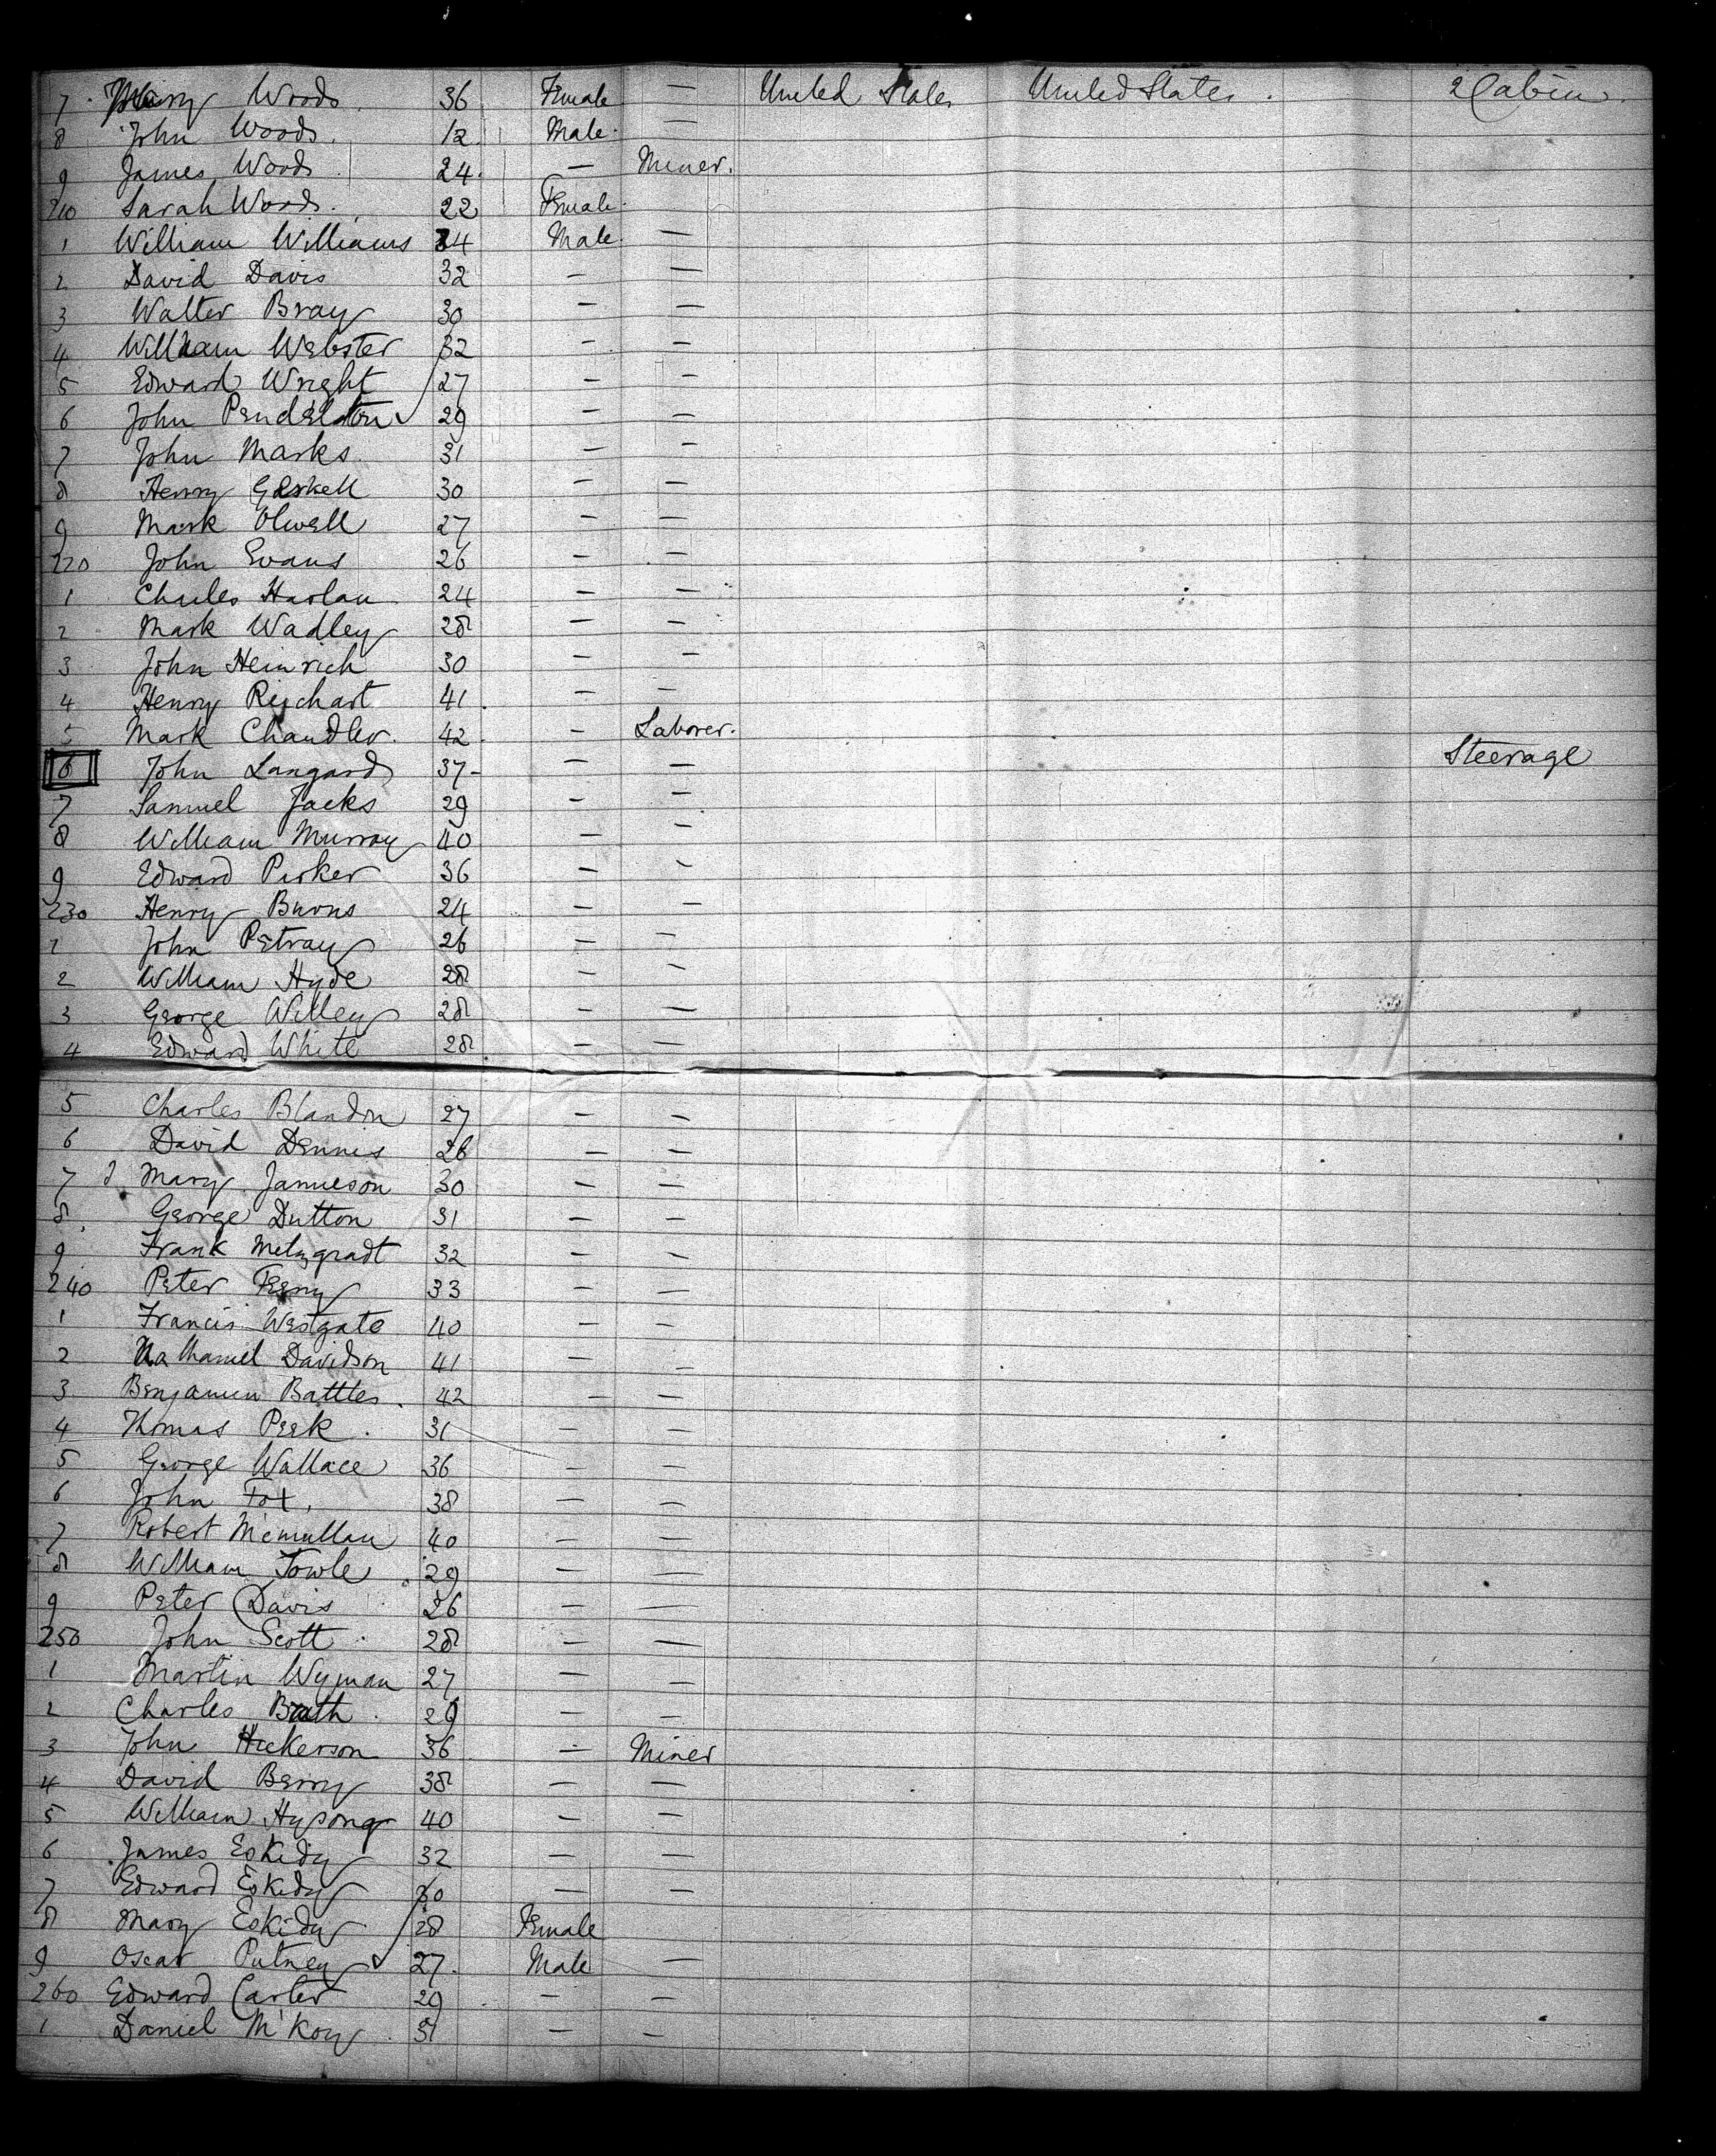 7 Mary Woods 36 Female — United States United States. 2 Cabin.
8 John Woods. 12. Male. —
9 James Woods 24. — Miner.
210 Sarah Woods. 22 Female.
1 William Williams 34 Male. —
2 David Davis 32 — —
3 Walter Bray 30 — —
4 William Webster 32 — —
5 Edward Wright 27 — —
6 John Pendelton 29 — —
7 John Marks. 31 — —
8 Henry Gaskell 30 — —
9 Mark Olwell 27 — —
220 John Evans 26 — —
1 Charles Harlan 24 — —
2 Mark Wadley 28 — —
3 John Heinrich 30 — —
4 Henry Reichart 41. — —
5 Mark Chandler. 42. — Laborer.
6 John Langard 37- — — Steerage
7 Samuel Jacks 29 — —
8 William Murray 40 — —
9 Edward Parker 36 — —
230 Henry Burns 24 — —
1 John Petray 26 — —
2 William Hyde 28 — —
3 George Willey 28 — —
4 Edward White 28. — —
5 Charles Blandon 27 — —
6 David Dennis 26 — —
7 Mary Jamieson 30 — —
8. George Dutton 31 — —
9 Frank Metzgradt 32 — —
240 Peter Feeny 33 — —
1 Francis Westgate 40 — —
2 Nathaniel Davidson 41 — —
3 Benjamin Battles. 42 — —
4 Thomas Peek. 31 — —
5 George Wallace 36 — —
6 John Fox. 38 — —
7 Robert McMullan 40 — —
8 William Towle 29 — —
9 Peter Davis 26 — —
250 John Scott. 28 — —
1 Martin Wyman 27 — —
2 Charles Brath. 29 — —
3 John Hickerson 36 — Miner
4 David Berry 38 — —
5 William Hysong 40 — —
6 James Eskidy 32 — —
7 Edward Eskidy 30 — —
8 Mary Eskidy 28 Female
9 Oscar Putney 27. Male —
260 Edward Carter 29 — —
1 Daniel M'Koy. 31 — —